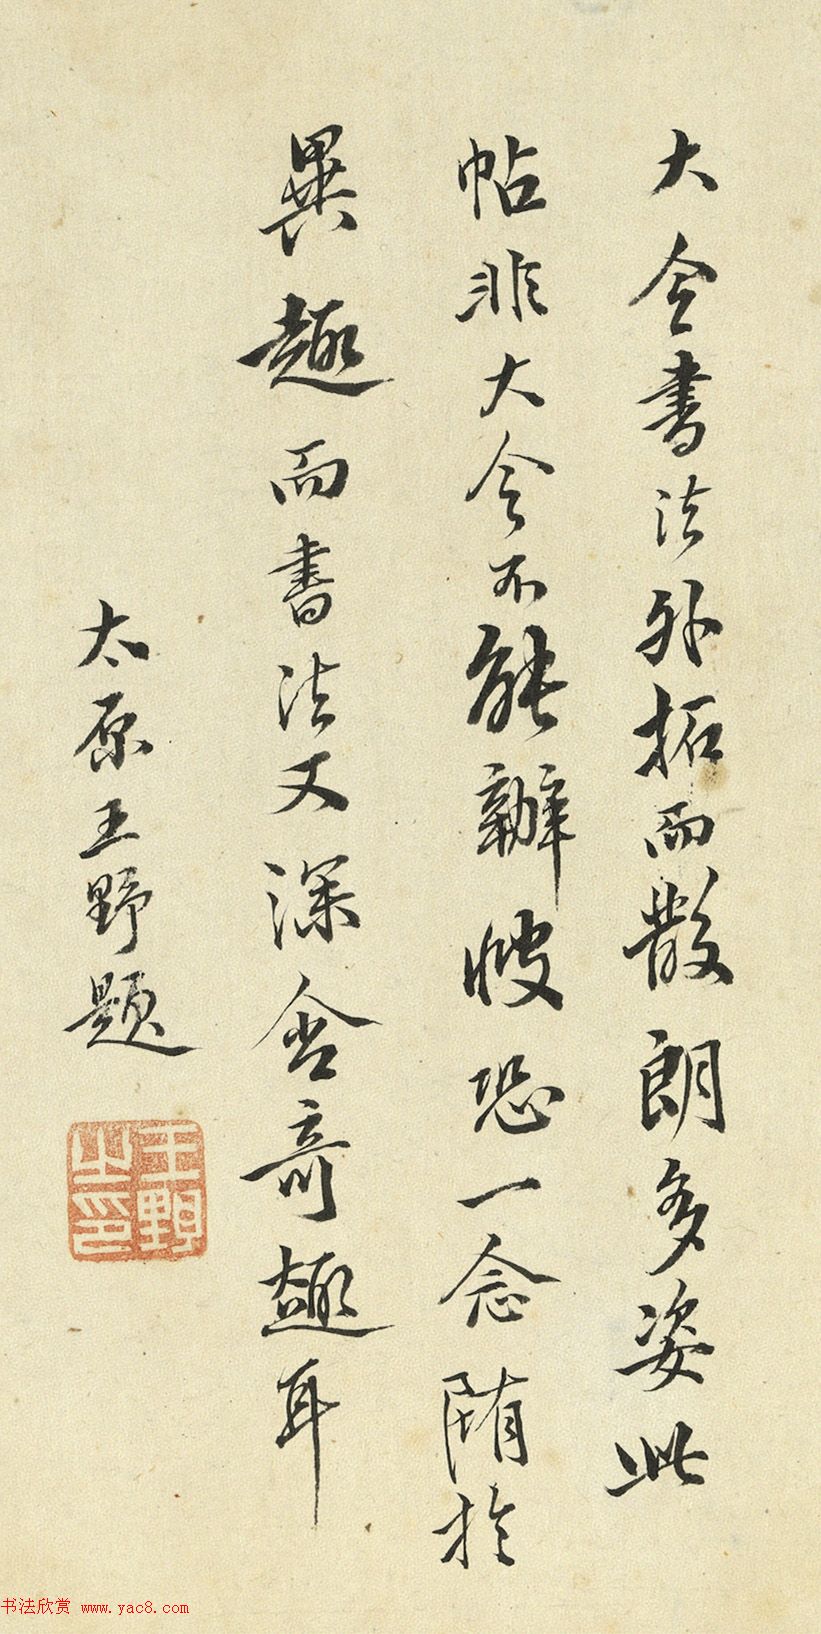 大令書法外拓而散朗多姿此
帖非大令不能辦峧恐一念随於
異趣而書法又深含奇趣耳
太原王野題
王野之印
书法欣赏 www.yac8.com